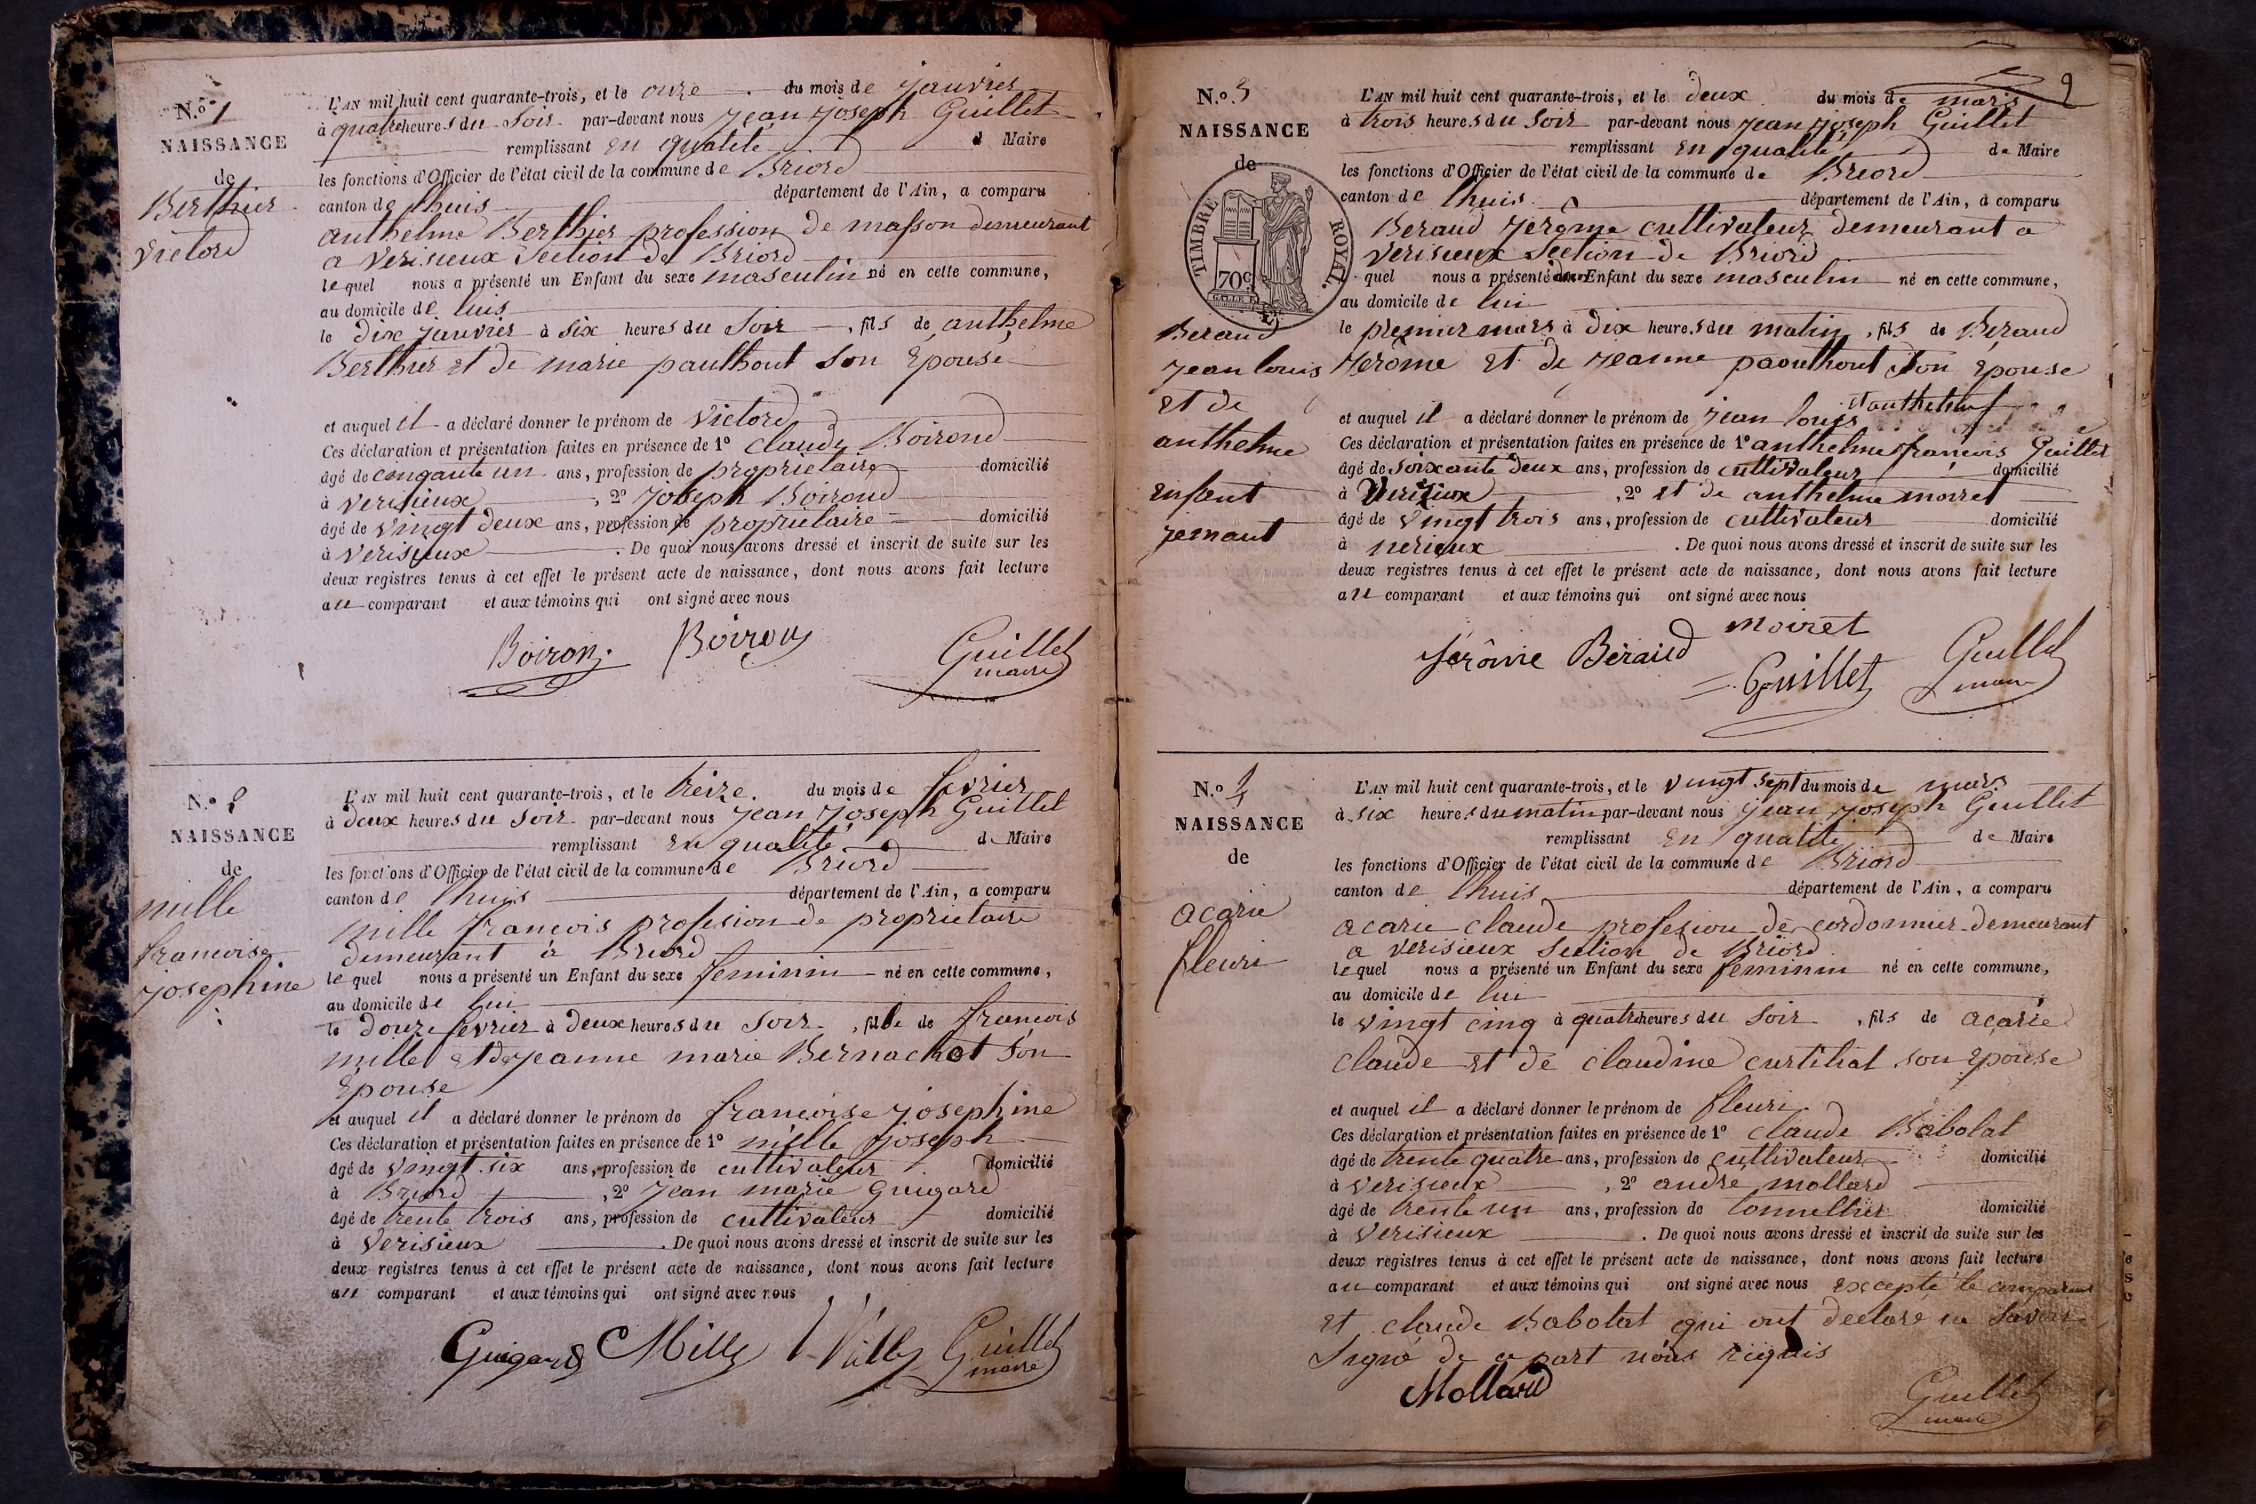 N.º 1
NAISSANCE
de
Berthier
victord
L'AN mil huit cent quarante-trois, et le onze du mois de janvier
à quatre heures du soir par-devant nous jean joseph Guillet
remplissant en qualité d Maire
les fonctions d'Officier de l'état civil de la commune de Briord
canton de lhuis département de l'Ain, a comparu
anthelme Berthier profession de masson demeurant
a verisieux Section de Briord
lequel nous a présenté un Enfant du sexe masculin né en cette commune,
au domicile de luis
le dix janvier à six heures du soir, fils de anthelme
Berthier et de marie paulhout son épouse
et auquel il a déclaré donner le prénom de victord
Ces déclaration et présentation faites en présence de 1º claude Boirond
âgé de cinqante un ans, profession de propriétaire domicilié
à verisieux, 2º joseph Boirond
âgé de vingt deux ans, profession de propriétaire domicilié
à verisieux. De quoi nous avons dressé et inscrit de suite sur les
deux registres tenus à cet effet le présent acte de naissance, dont nous avons fait lecture
au comparant et aux témoins qui ont signé avec nous
Boiron Boiron Guillet
maire
N.º 2
NAISSANCE
de
mille
francoise
josephine
L'AN mil huit cent quarante-trois, et le treize du mois de fevrier
à deux heures du soir par-devant nous jean joseph Guillet
remplissant en qualité de Maire
les fonctions d'Officier de l'état civil de la commune de Briord
canton de lhuis département de l'Ain, a comparu
mille francois profesion de proprietaire
demeurant à Briord
lequel nous a présenté un Enfant du sexe feminin né en cette commune,
au domicile de lui
le douze fevrier à deux heures du soir, fille de francois
mille et de jeanne marie Bernachot son
épouse
et auquel il a déclaré donner le prénom de francoise josephine
Ces déclaration et présentation faites en présence de 1º mille joseph
âgé de vingt six ans, profession de cultivateur domicilié
à Briord, 2º jean marie guigard
âgé de trente trois ans, profession de cultivateur domicilié
à verisieux. De quoi nous avons dressé et inscrit de suite sur les
deux registres tenus à cet effet le présent acte de naissance, dont nous avons fait lecture
au comparant et aux témoins qui ont signé avec nous
Guigard Mille Mille Guillet
maire
2
N.º 3
NAISSANCE
de
TIMBRE ROYAL.
70c
Beraud
jean louis
et de
anthelme
enfant
jemaut
L'AN mil huit cent quarante-trois, et le deux du mois de mars
à trois heures du soir par-devant nous jean joseph Guillet
remplissant en qualité de Maire
les fonctions d'Officier de l'état civil de la commune de Briord
canton de lhuis département de l'Ain, à comparu
Beraud jerôme cultivateur demeurant a
verisieux Section de Briord
quel nous a présenté deux Enfant du sexe masculin né en cette commune,
au domicile de lui
le premier mars à dix heures du matin, fils de Béraud
jerôme et de jeanne paoulhout son épouse
et auquel il a déclaré donner le prénom de jean louis et anthelme
Ces déclaration et présentation faites en présence de 1º anthelme francois Guillet
âgé de soixante deux ans, profession de cultivateur domicilié
à Verizieux, 2º et de anthelme moiret
âgé de vingt trois ans, profession de cultivateur domicilié
à verisieux. De quoi nous avons dressé et inscrit de suite sur les
deux registres tenus à cet effet le présent acte de naissance, dont nous avons fait lecture
au comparant et aux témoins qui ont signé avec nous
moiret
Jerôme Béraud Guillet Guillet
maire
N.º 4
NAISSANCE
de
acarie
fleuri
L'AN mil huit cent quarante-trois, et le vingt sept du mois de mars
à six heures du matin par-devant nous jean joseph Guillet
remplissant en qualité de Maire
les fonctions d'Officier de l'état civil de la commune de Briord
canton de lhuis département de l'Ain, a comparu
acarie claude profesion de cordonnier demeurant
a verisieux section de Briord
lequel nous a présenté un Enfant du sexe feminin né en cette commune,
au domicile de lui
le vingt cinq à quatre heures du soir, fils de acarie
claude et de claudine curtiliat son épouse
et auquel il a déclaré donner le prénom de fleuri
Ces déclaration et présentation faites en présence de 1º claude Babolat
âgé de trente quatre ans, profession de cultivateur domicilié
à verisieux, 2º andré mollard
âgé de trente un ans, profession de tonnellier domicilié
à verisieux. De quoi nous avons dressé et inscrit de suite sur les
deux registres tenus à cet effet le présent acte de naissance, dont nous avons fait lecture
au comparant et aux témoins qui ont signé avec nous excepté le comparant
et claude Babolat qui ont declaré ne savoir
signé de ce part nous riquis
Mollard Guillet
maire